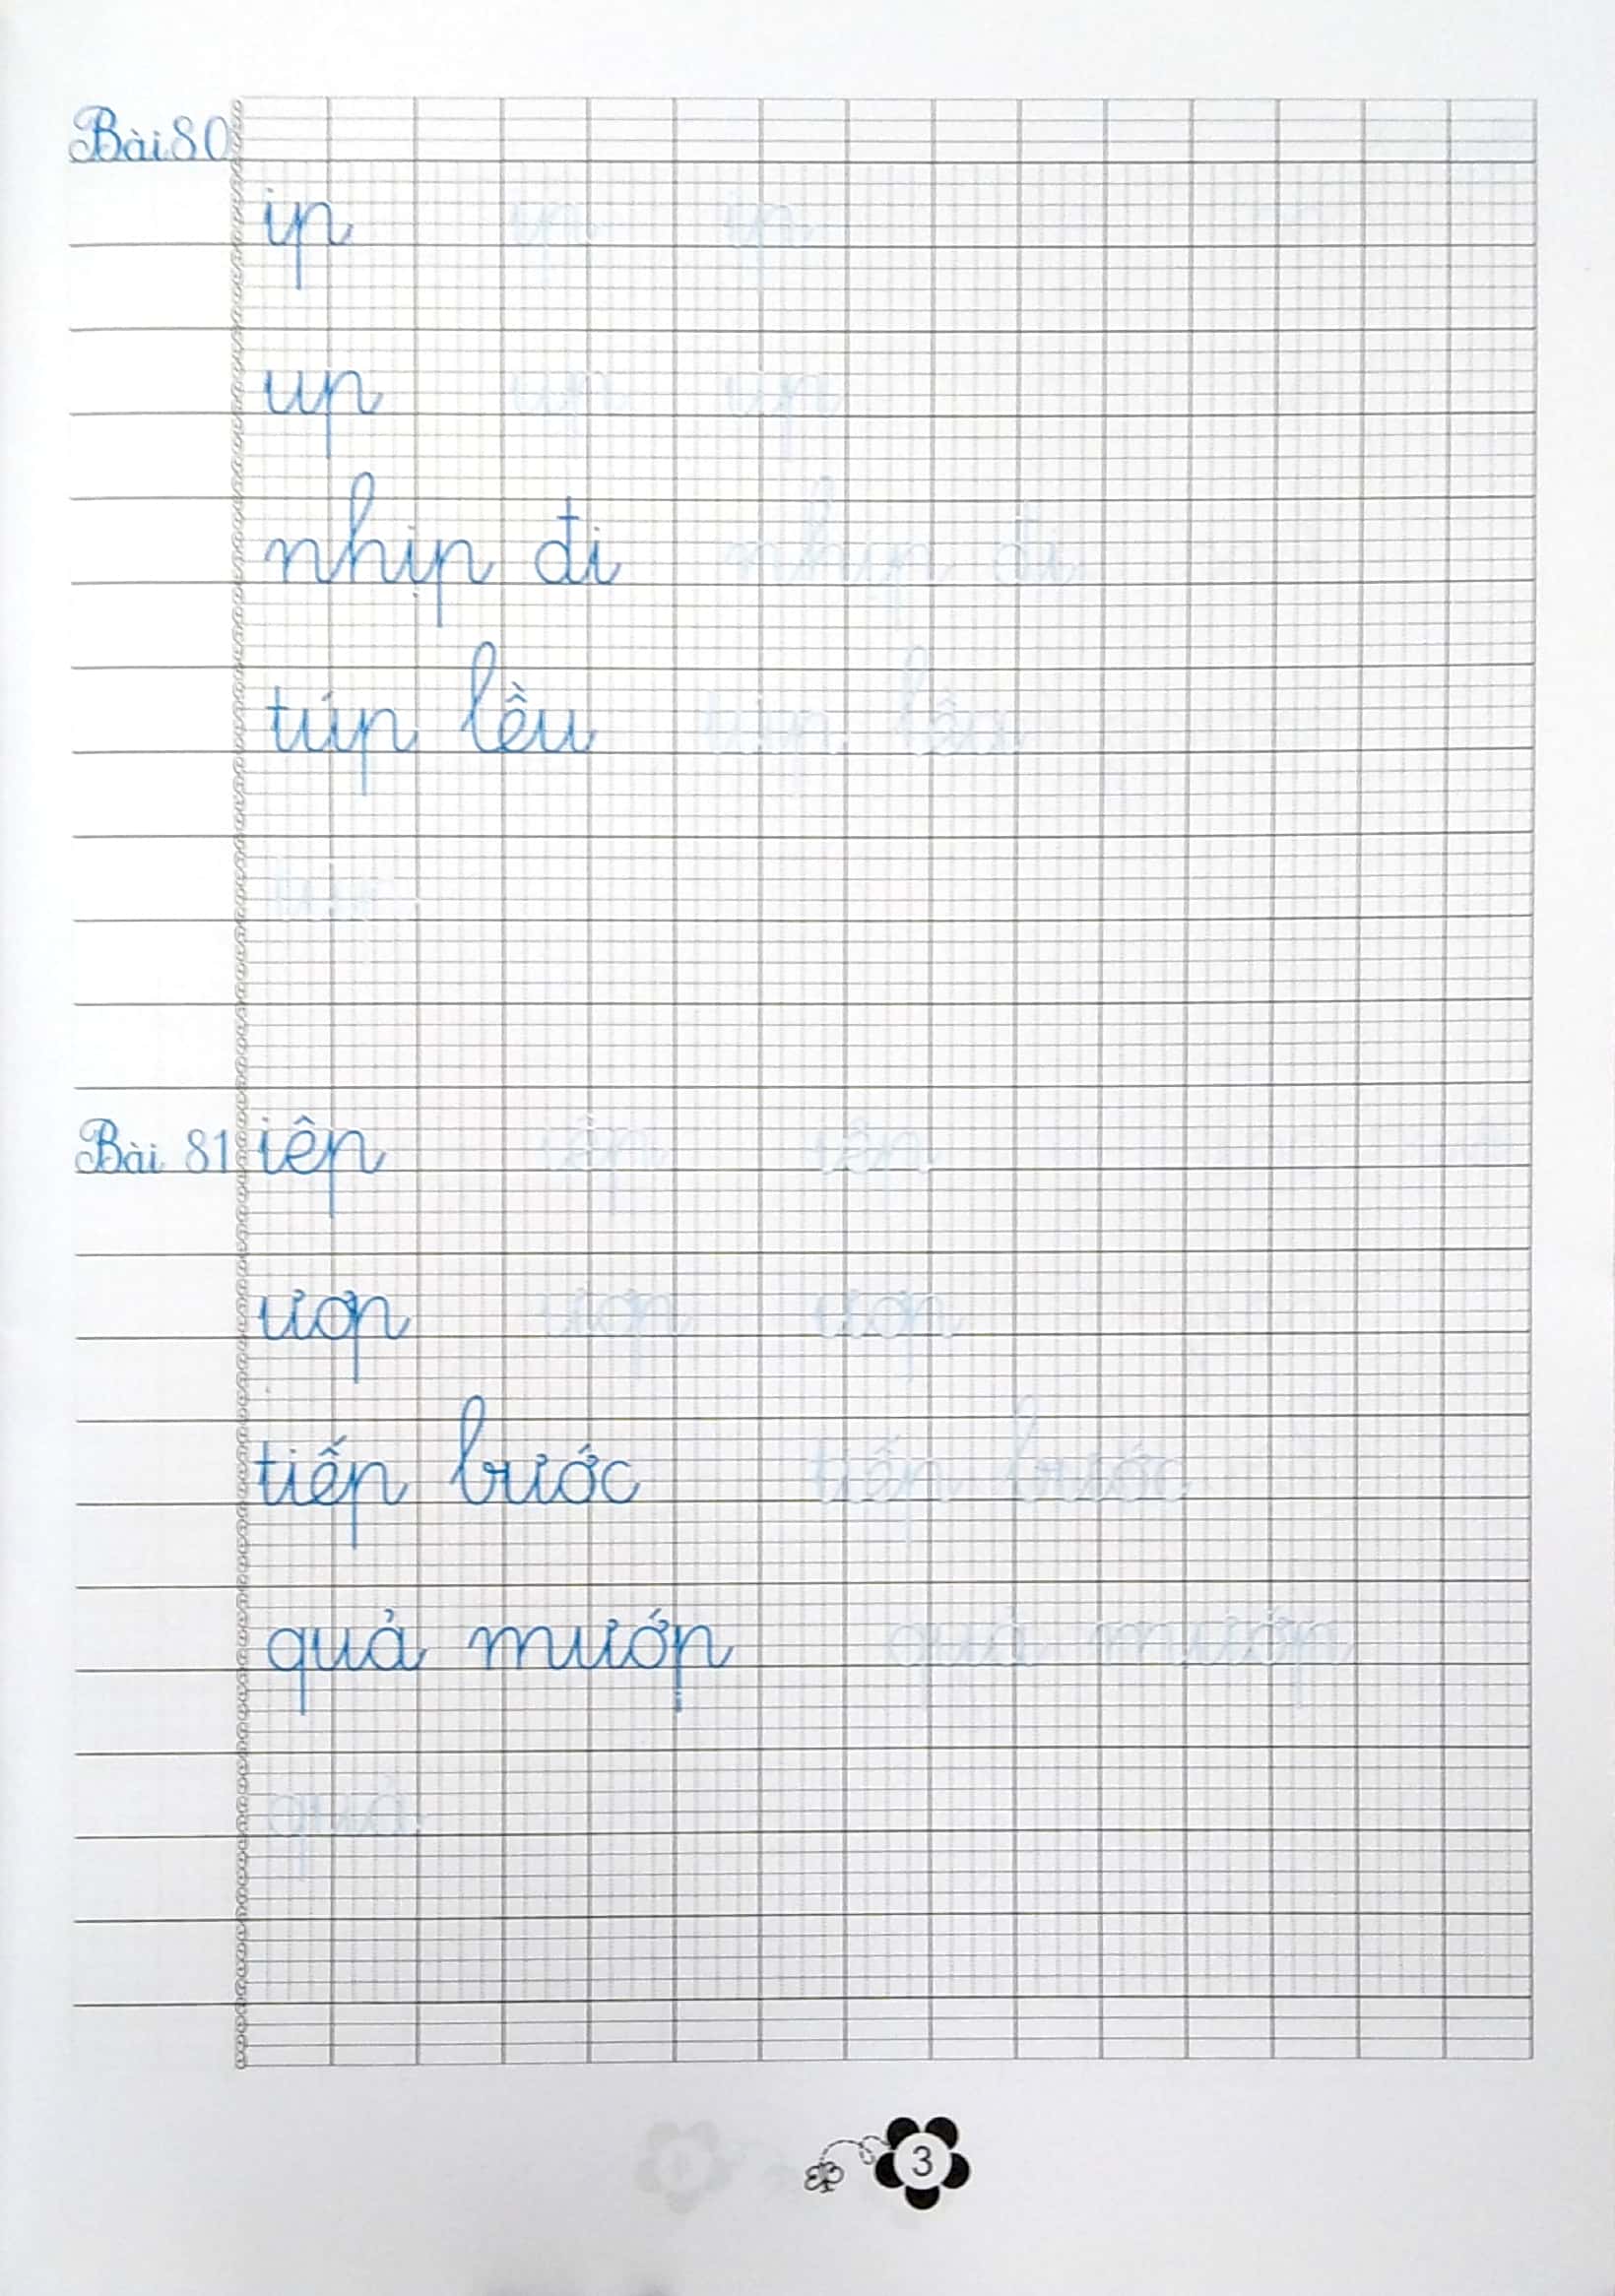 Bài 80
ip ip ip
up up up
nhịp đi nhịp đi
túp lều túp lều
Bài 81 iêp iêp iêp
ươp ươp ươp
tiếp bước tiếp bước
quả mướp quả mướp
quả
3